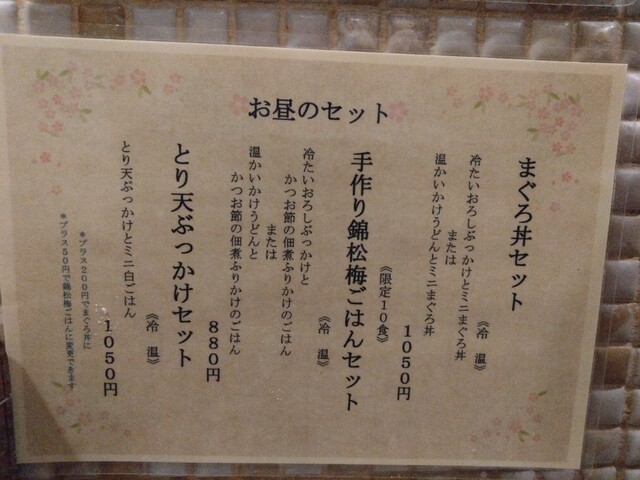 お昼のセット
まぐろ丼セット
《冷　温》
冷たいおろしぶっかけとミニまぐろ丼
または
温かいかけうどんとミニまぐろ丼
1050円
手作り錦松梅ごはんセット
《限定10食》
《冷　温》
冷たいおろしぶっかけと
かつお節の佃煮ふりかけのごはん
または
温かいかけうどんと
かつお節の佃煮ふりかけのごはん
880円
とり天ぶっかけセット
《冷　温》
とり天ぶっかけとミニ白ごはん
1050円
*プラス200円でまぐろ丼に
*プラス50円で錦松梅ごはんに変更できます